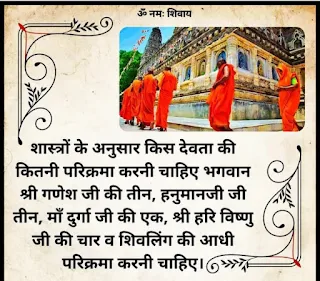 ॐ नमः शिवाय
शास्त्रों के अनुसार किस देवता की
कितनी परिक्रमा करनी चाहिए भगवान
श्री गणेश जी की तीन, हनुमानजी जी
तीन, माँ दुर्गा जी की एक, श्री हरि विष्णु
जी की चार व शिवलिंग की आधी
परिक्रमा करनी चाहिए।